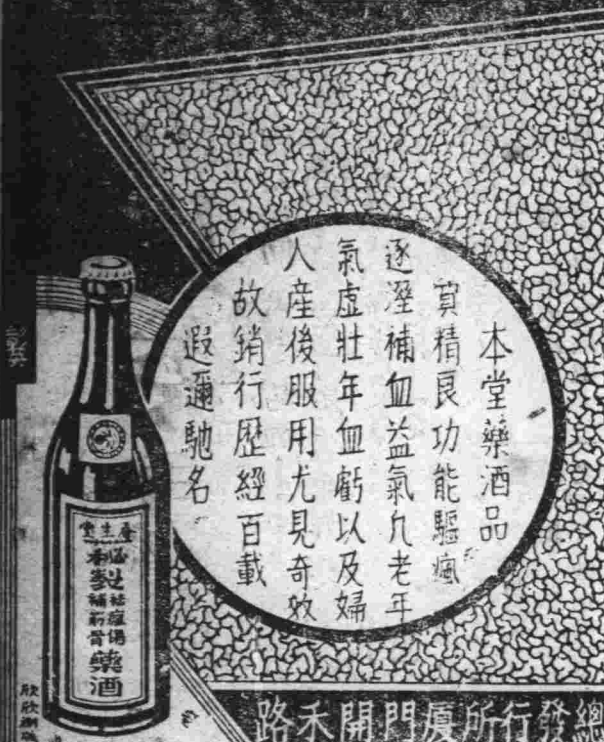 本堂藥酒品
質精良功能驅瘋
逐溼補血益氣凡老年
氣虛壯年血虧以及婦
人產後服用尤見奇效
故銷行歷經百載
遐邇馳名
生堂
補筋骨
藥酒
欣欣
總發行所廈門開禾路